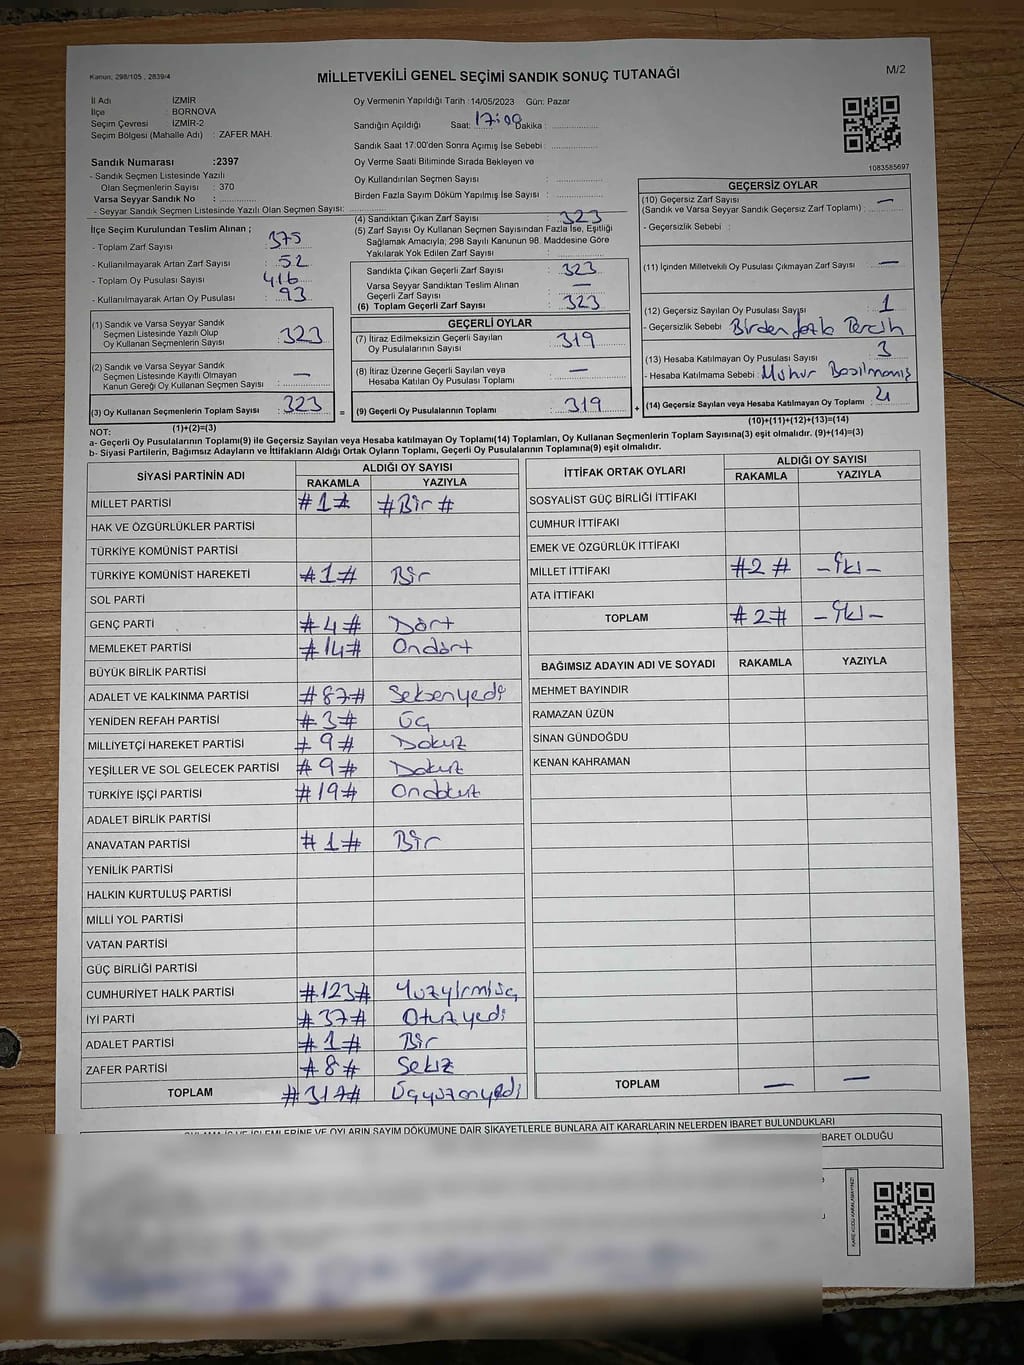 Kanun; 298/105 , 2839/4
MİLLETVEKİLİ GENEL SEÇİMİ SANDIK SONUÇ TUTANAĞI
M/2
İl Adı İZMİR
İlçe : BORNOVA
Seçim Çevresi İZMİR-2
Seçim Bölgesi (Mahalle Adı) : ZAFER MAH.
Sandık Numarası :2397
- Sandık Seçmen Listesinde Yazılı
Olan Seçmenlerin Sayısı : 370
Varsa Seyyar Sandık No :
- Seyyar Sandık Seçmen Listesinde Yazılı Olan Seçmen Sayısı:
Oy Vermenin Yapıldığı Tarih :14/05/2023 Gün: Pazar
Sandığın Açıldığı Saat: 17:00 Dakika :
Sandık Saat 17.00'den Sonra Açımış İse Sebebi :
Oy Verme Saati Bitiminde Sırada Bekleyen ve
Oy Kullandırılan Seçmen Sayısı :
Birden Fazla Sayım Döküm Yapılmış İse Sayısı :
1083585697
İlçe Seçim Kurulundan Teslim Alınan ;
- Toplam Zarf Sayısı : 375
- Kullanılmayarak Artan Zarf Sayısı : 52
- Toplam Oy Pusulası Sayısı : 416
- Kullanılmayarak Artan Oy Pusulası : 93
(1) Sandık ve Varsa Seyyar Sandık
Seçmen Listesinde Yazılı Olup
Oy Kullanan Seçmenlerin Sayısı : 323
(2) Sandık ve Varsa Seyyar Sandık
Seçmen Listesinde Kayıtlı Olmayan
Kanun Gereği Oy Kullanan Seçmen Sayısı : —
(3) Oy Kullanan Seçmenlerin Toplam Sayısı : 323 =
(1)+(2)=(3)
(4) Sandıktan Çıkan Zarf Sayısı : 323
(5) Zarf Sayısı Oy Kullanan Seçmen Sayısından Fazla İse, Eşitliği
Sağlamak Amacıyla; 298 Sayılı Kanunun 98. Maddesine Göre
Yakılarak Yok Edilen Zarf Sayısı :
Sandıkta Çıkan Geçerli Zarf Sayısı : 323
Varsa Seyyar Sandıktan Teslim Alınan
Geçerli Zarf Sayısı : —
(6) Toplam Geçerli Zarf Sayısı : 323
GEÇERLİ OYLAR
(7) İtiraz Edilmeksizin Geçerli Sayılan
Oy Pusulalarının Sayısı : 319
(8) İtiraz Üzerine Geçerli Sayılan veya
Hesaba Katılan Oy Pusulası Toplamı : —
(9) Geçerli Oy Pusulalarının Toplamı : 319 +
GEÇERSİZ OYLAR
(10) Geçersiz Zarf Sayısı
(Sandık ve Varsa Seyyar Sandık Geçersiz Zarf Toplamı) : —
- Geçersizlik Sebebi :
(11) İçinden Milletvekili Oy Pusulası Çıkmayan Zarf Sayısı —
(12) Geçersiz Sayılan Oy Pusulası Sayısı : 1
- Geçersizlik Sebebi : Birden fazla Tercih
(13) Hesaba Katılmayan Oy Pusulası Sayısı : 3
- Hesaba Katılmama Sebebi : Mühür Basılmamış
(14) Geçersiz Sayılan veya Hesaba Katılmayan Oy Toplamı : 4
(10)+(11)+(12)+(13)=(14)
NOT:
a- Geçerli Oy Pusulalarının Toplamı(9) ile Geçersiz Sayılan veya Hesaba katılmayan Oy Toplamı(14) Toplamları, Oy Kullanan Seçmenlerin Toplam Sayısına(3) eşit olmalıdır. (9)+(14)=(3)
b- Siyasi Partilerin, Bağımsız Adayların ve İttifakların Aldığı Ortak Oyların Toplamı, Geçerli Oy Pusulalarının Toplamına(9) eşit olmalıdır.
SİYASİ PARTİNİN ADI ALDIĞI OY SAYISI
RAKAMLA YAZIYLA
MİLLET PARTİSİ #1# #Bir#
HAK VE ÖZGÜRLÜKLER PARTİSİ
TÜRKİYE KOMÜNİST PARTİSİ
TÜRKİYE KOMÜNİST HAREKETİ #1# Bir
SOL PARTİ
GENÇ PARTİ #4# Dört
MEMLEKET PARTİSİ #14# Ondört
BÜYÜK BİRLİK PARTİSİ
ADALET VE KALKINMA PARTİSİ #87# Seksenyedi
YENİDEN REFAH PARTİSİ #3# Üç
MİLLİYETÇİ HAREKET PARTİSİ #9# Dokuz
YEŞİLLER VE SOL GELECEK PARTİSİ #9# Dokuz
TÜRKİYE İŞÇİ PARTİSİ #19# Ondokuz
ADALET BİRLİK PARTİSİ
ANAVATAN PARTİSİ #1# Bir
YENİLİK PARTİSİ
HALKIN KURTULUŞ PARTİSİ
MİLLİ YOL PARTİSİ
VATAN PARTİSİ
GÜÇ BİRLİĞİ PARTİSİ
CUMHURİYET HALK PARTİSİ #123# Yüzyirmiüç
İYİ PARTİ #37# Otuzyedi
ADALET PARTİSİ #1# Bir
ZAFER PARTİSİ #8# Sekiz
TOPLAM #317# Üçyüzonyedi
İTTİFAK ORTAK OYLARI ALDIĞI OY SAYISI
RAKAMLA YAZIYLA
SOSYALİST GÜÇ BİRLİĞİ İTTİFAKI
CUMHUR İTTİFAKI
EMEK VE ÖZGÜRLÜK İTTİFAKI
MİLLET İTTİFAKI #2# -İki-
ATA İTTİFAKI
TOPLAM #2# -İki-
BAĞIMSIZ ADAYIN ADI VE SOYADI RAKAMLA YAZIYLA
MEHMET BAYINDIR
RAMAZAN ÜZÜN
SİNAN GÜNDOĞDU
KENAN KAHRAMAN
TOPLAM — —
İŞLEMLERİNE VE OYLARIN SAYIM DÖKÜMÜNE DAİR ŞİKAYETLERLE BUNLARA AİT KARARLARIN NELERDEN İBARET BULUNDUKLARI
BARET OLDUĞU